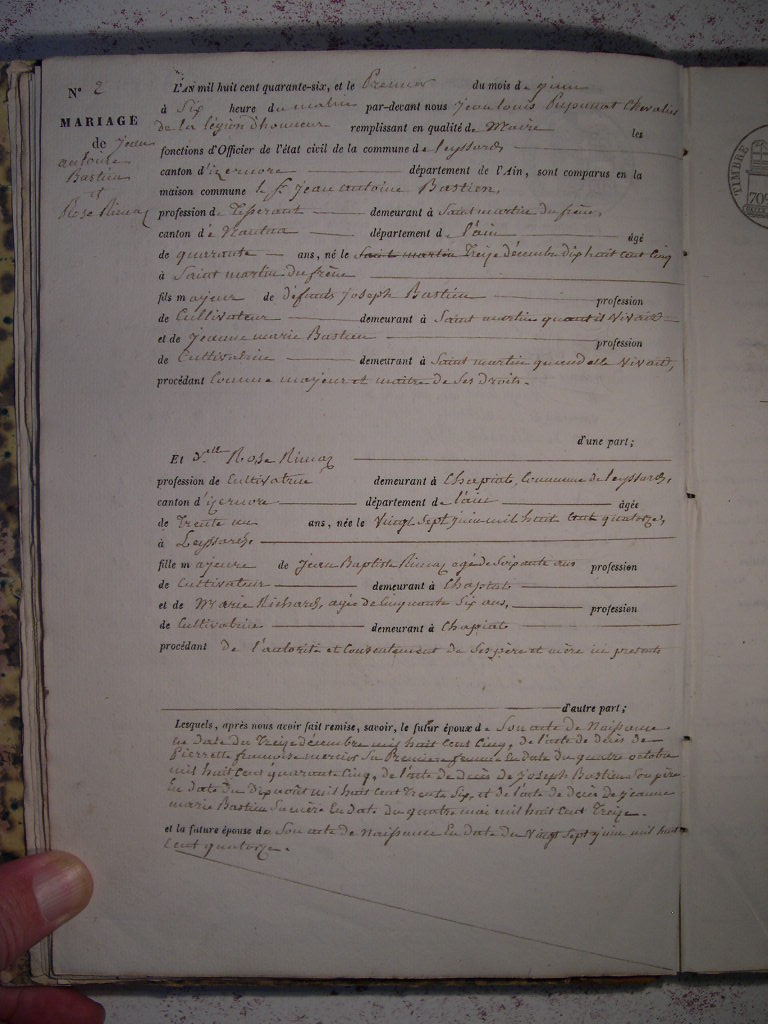 N° 2
MARIAGE
de Jean
antoine
Bastien
et
Rose Rimaz
L'AN mil huit cent quarante-six, et le Premier du mois de juin
à Six heure du matin par-devant nous Jean Louis Chevalier
de la légion d'honneur remplissant en qualité de Maire les
fonctions d'Officier de l'état civil de la commune de Leyssard,
canton d'izernore département de l'Ain, sont comparus en la
maison commune le Sr Jean antoine Bastien,
profession de Tisserant demeurant à Saint martin du frêne,
canton de Nantua département de l'ain âgé
de quarante ans, né le Saint martin Treize décembre dix huit cent cinq
à Saint martin du frêne
fils majeur de défunts Joseph Bastien profession
de Cultivateur demeurant à Saint martin quand il Vivait
et de jeanne marie Bastien profession
de Cultivatrice demeurant à Saint martin quand elle Vivait,
procédant Comme majeur et maitre de Ses Droits.
d'une part;
Et Delle Rose Rimaz
profession de Cultivatrice demeurant à Chapiat, Commune de Leyssard,
canton d'izernore département de l'ain âgée
de Trente un ans, née le Vingt Sept juin mil huit cent quatorze,
à Leyssard
fille majeure de Jean Baptiste Rimaz agé de Soixante ans profession
de Cultivateur demeurant à Chapiat
et de Marie Richard, agée de Cinquante Six ans, profession
de Cultivatrice demeurant à Chapiat
procédant de l'autorité et Consentement de Ses père et mère ici présents
d'autre part;
Lesquels, après nous avoir fait remise, savoir, le futur époux de Son acte de Naissance
en date du Treize décembre mil huit Cent Cinq, de l'acte de décès de
Pierrette françoise mercier Sa Première femme En date du quatre octobre
mil huit Cent quarante Cinq, de l'acte de décès de Joseph Bastien Son père
En date du dix août mil huit Cent Trente Six, et de l'acte de décès de Jeanne
marie Bastien Sa mère En date du quatre mai mil huit Cent Treize.
et la future épouse de Son acte de Naissance En date du Vingt Sept juin mil huit
Cent quatorze.
TIMBRE
70